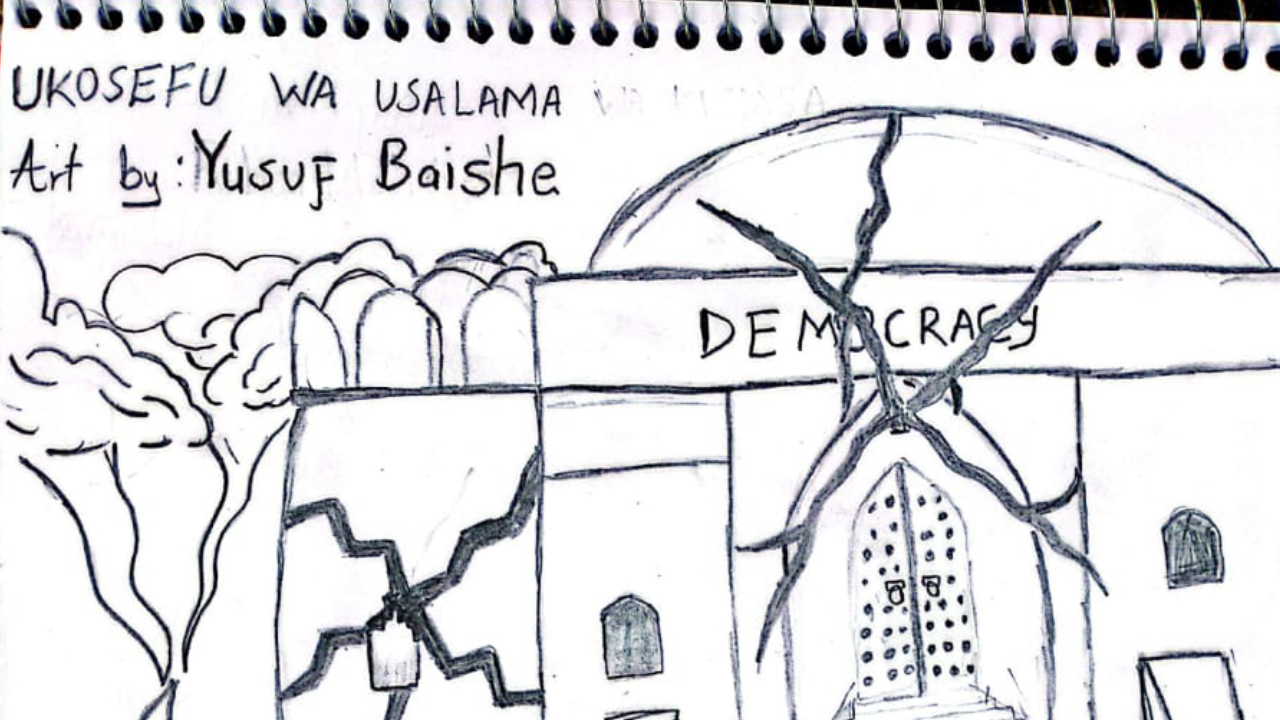 UKOSEFU WA USALAMA
Art by: Yusuf Baishe
DEMOCRACY